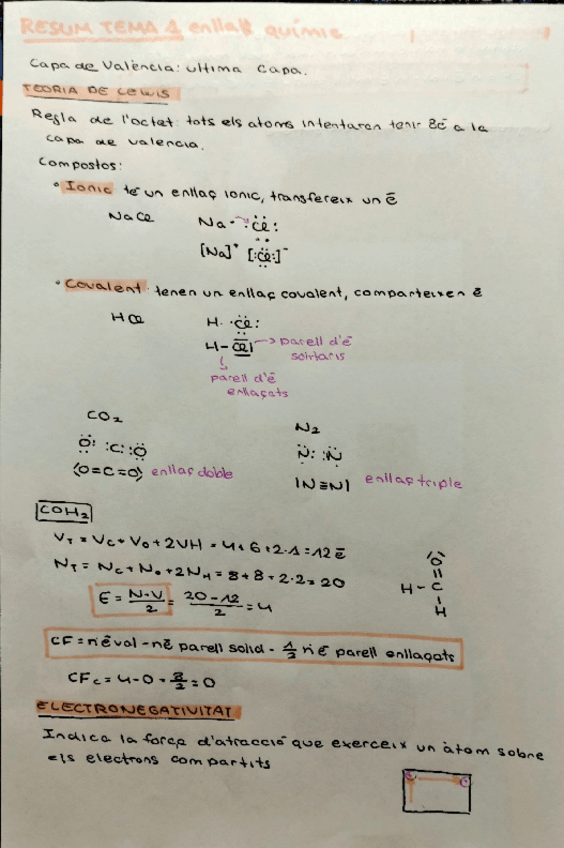 RESUM TEMA 1 enllaç químic
Capa de València: ultima capa.
TEORIA DE LEWIS
Regla de l'octet: tots els atoms intentaran tenir 8ē a la
capa de valencia.
Compostos:
• Ionic té un enllaç ionic, transfereix un ē
NaCl Na· ·C̈l:
[Na]⁺ [:C̈l:]⁻
• Covalent: tenen un enllaç covalent, comparteixen ē
HCl H· ·C̈l:
H-C̅l| → parell d'ē
solitaris
parell d'ē
enllaçats
CO₂ N₂
Ö: :C: :Ö :N: :N:
⟨O=C=O⟩ enllaç doble |N≡N| enllaç triple
COH₂
VT = VC + VO + 2VH = 4+6+2·1=12ē
NT = NC + NO + 2NH = 8+8+2·2=20
E = N-V/2 = 20-12/2 = 4
O
||
H-C
|
H
CF = nºē val - nºē parell solid - 1/2 nº ē parell enllaçats
CFC = 4-0-8/2=0
ELECTRONEGATIVITAT
Indica la força d'atracció que exerceix un àtom sobre
els electrons compartits